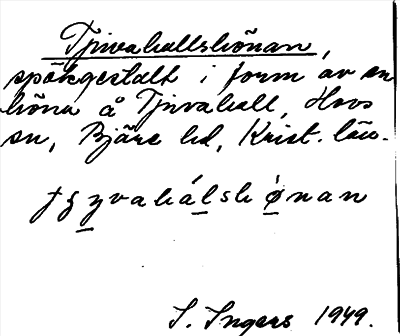 Tjuvahallshönan,
spökgestalt i form av en
höna å Tjuvahall, Hovs
sn, Bjäre hd, Krist. län.
S. Ingers 1949.